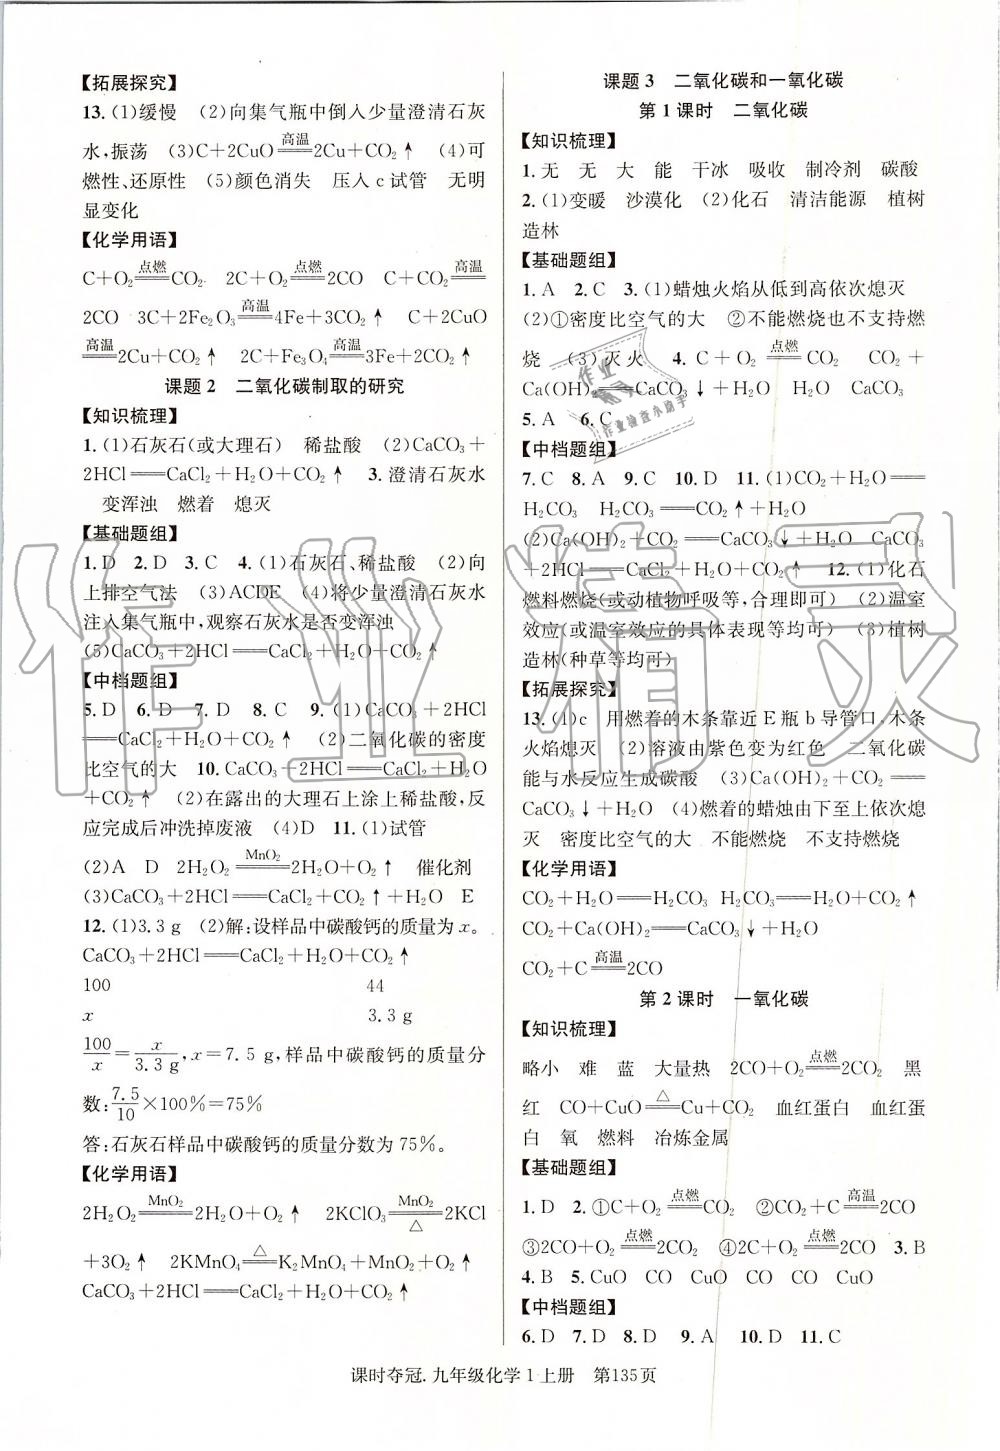 【拓展探究】
13. (1)缓慢　(2)向集气瓶中倒入少量澄清石灰
水,振荡　(3)C＋2CuO高温══2Cu＋CO₂↑　(4)可
燃性、还原性　(5)颜色消失　压入c试管　无明
显变化
【化学用语】
C＋O₂点燃══CO₂　2C＋O₂点燃══2CO　C＋CO₂高温══
2CO　3C＋2Fe₂O₃高温══4Fe＋3CO₂↑　C＋2CuO
高温══2Cu＋CO₂↑　2C＋Fe₃O₄高温══3Fe＋2CO₂↑
课题2　二氧化碳制取的研究
【知识梳理】
1. (1)石灰石(或大理石)　稀盐酸　(2)CaCO₃＋
2HCl══CaCl₂＋H₂O＋CO₂↑　3. 澄清石灰水
变浑浊　燃着　熄灭
【基础题组】
1. D　2. D　3. C　4. (1)石灰石、稀盐酸　(2)向
上排空气法　(3)ACDE　(4)将少量澄清石灰水
注入集气瓶中,观察石灰水是否变浑浊
(5)CaCO₃＋2HCl══CaCl₂＋H₂O＋CO₂↑
【中档题组】
5. D　6. D　7. D　8. C　9. (1)CaCO₃＋2HCl
══CaCl₂＋H₂O＋CO₂↑　(2)二氧化碳的密度
比空气的大　10. CaCO₃＋2HCl══CaCl₂＋H₂O
＋CO₂↑　(2)在露出的大理石上涂上稀盐酸,反
应完成后冲洗掉废液　(4)D　11. (1)试管
(2)A　D　2H₂O₂MnO₂══2H₂O＋O₂↑　催化剂
(3)CaCO₃＋2HCl══CaCl₂＋CO₂↑＋H₂O　E
12. (1)3.3 g　(2)解:设样品中碳酸钙的质量为x。
CaCO₃＋2HCl══CaCl₂＋H₂O＋CO₂↑
100　44
x　3.3 g
100/x＝x/3.3 g,x＝7.5 g,样品中碳酸钙的质量分
数:7.5/10×100％＝75％
答:石灰石样品中碳酸钙的质量分数为75％。
【化学用语】
2H₂O₂MnO₂══2H₂O＋O₂↑　2KClO₃MnO₂══△2KCl
＋3O₂↑　2KMnO₄△══K₂MnO₄＋MnO₂＋O₂↑
CaCO₃＋2HCl══CaCl₂＋H₂O＋CO₂↑
课题3　二氧化碳和一氧化碳
第1课时　二氧化碳
【知识梳理】
1. 无　无　大　能　干冰　吸收　制冷剂　碳酸
2. (1)变暖　沙漠化　(2)化石　清洁能源　植树
造林
【基础题组】
1. A　2. C　3. (1)蜡烛火焰从低到高依次熄灭
(2)①密度比空气的大　②不能燃烧也不支持燃
烧　(3)灭火　4. C＋O₂点燃══CO₂　CO₂＋
Ca(OH)₂══CaCO₃↓＋H₂O　H₂O　CaCO₃
5. A　6. C
【中档题组】
7. C　8. A　9. C　10. D　11. (1)CO₂＋H₂O══
H₂CO₃　H₂CO₃══CO₂↑＋H₂O
(2)Ca(OH)₂＋CO₂══CaCO₃↓＋H₂O　CaCO₃
＋2HCl══CaCl₂＋H₂O＋CO₂↑　12. (1)化石
燃料燃烧(或动植物呼吸等,合理即可)　(2)温室
效应(或温室效应的具体表现等均可)　(3)植树
造林(种草等均可)
【拓展探究】
13. (1)c　用燃着的木条靠近E瓶b导管口,木条
火焰熄灭　(2)溶液由紫色变为红色　二氧化碳
能与水反应生成碳酸　(3)Ca(OH)₂＋CO₂══
CaCO₃↓＋H₂O　(4)燃着的蜡烛由下至上依次熄
灭　密度比空气的大　不能燃烧　不支持燃烧
【化学用语】
CO₂＋H₂O══H₂CO₃　H₂CO₃══H₂O＋CO₂↑
CO₂＋Ca(OH)₂══CaCO₃↓＋H₂O
CO₂＋C高温══2CO
第2课时　一氧化碳
【知识梳理】
略小　难　蓝　大量热　2CO＋O₂点燃══2CO₂　黑
红　CO＋CuO△══Cu＋CO₂　血红蛋白　血红蛋
白　氧　燃料　冶炼金属
【基础题组】
1. D　2. ①C＋O₂点燃══CO₂　②CO₂＋C高温══2CO
③2CO＋O₂点燃══2CO₂　④2C＋O₂点燃══2CO　3. B
4. B　5. CuO　CO　CuO　CO　CO　CuO
【中档题组】
6. D　7. D　8. D　9. A　10. D　11. C
课时夺冠. 九年级化学1上册　第135页
作业精灵
作业
作业检查小助手